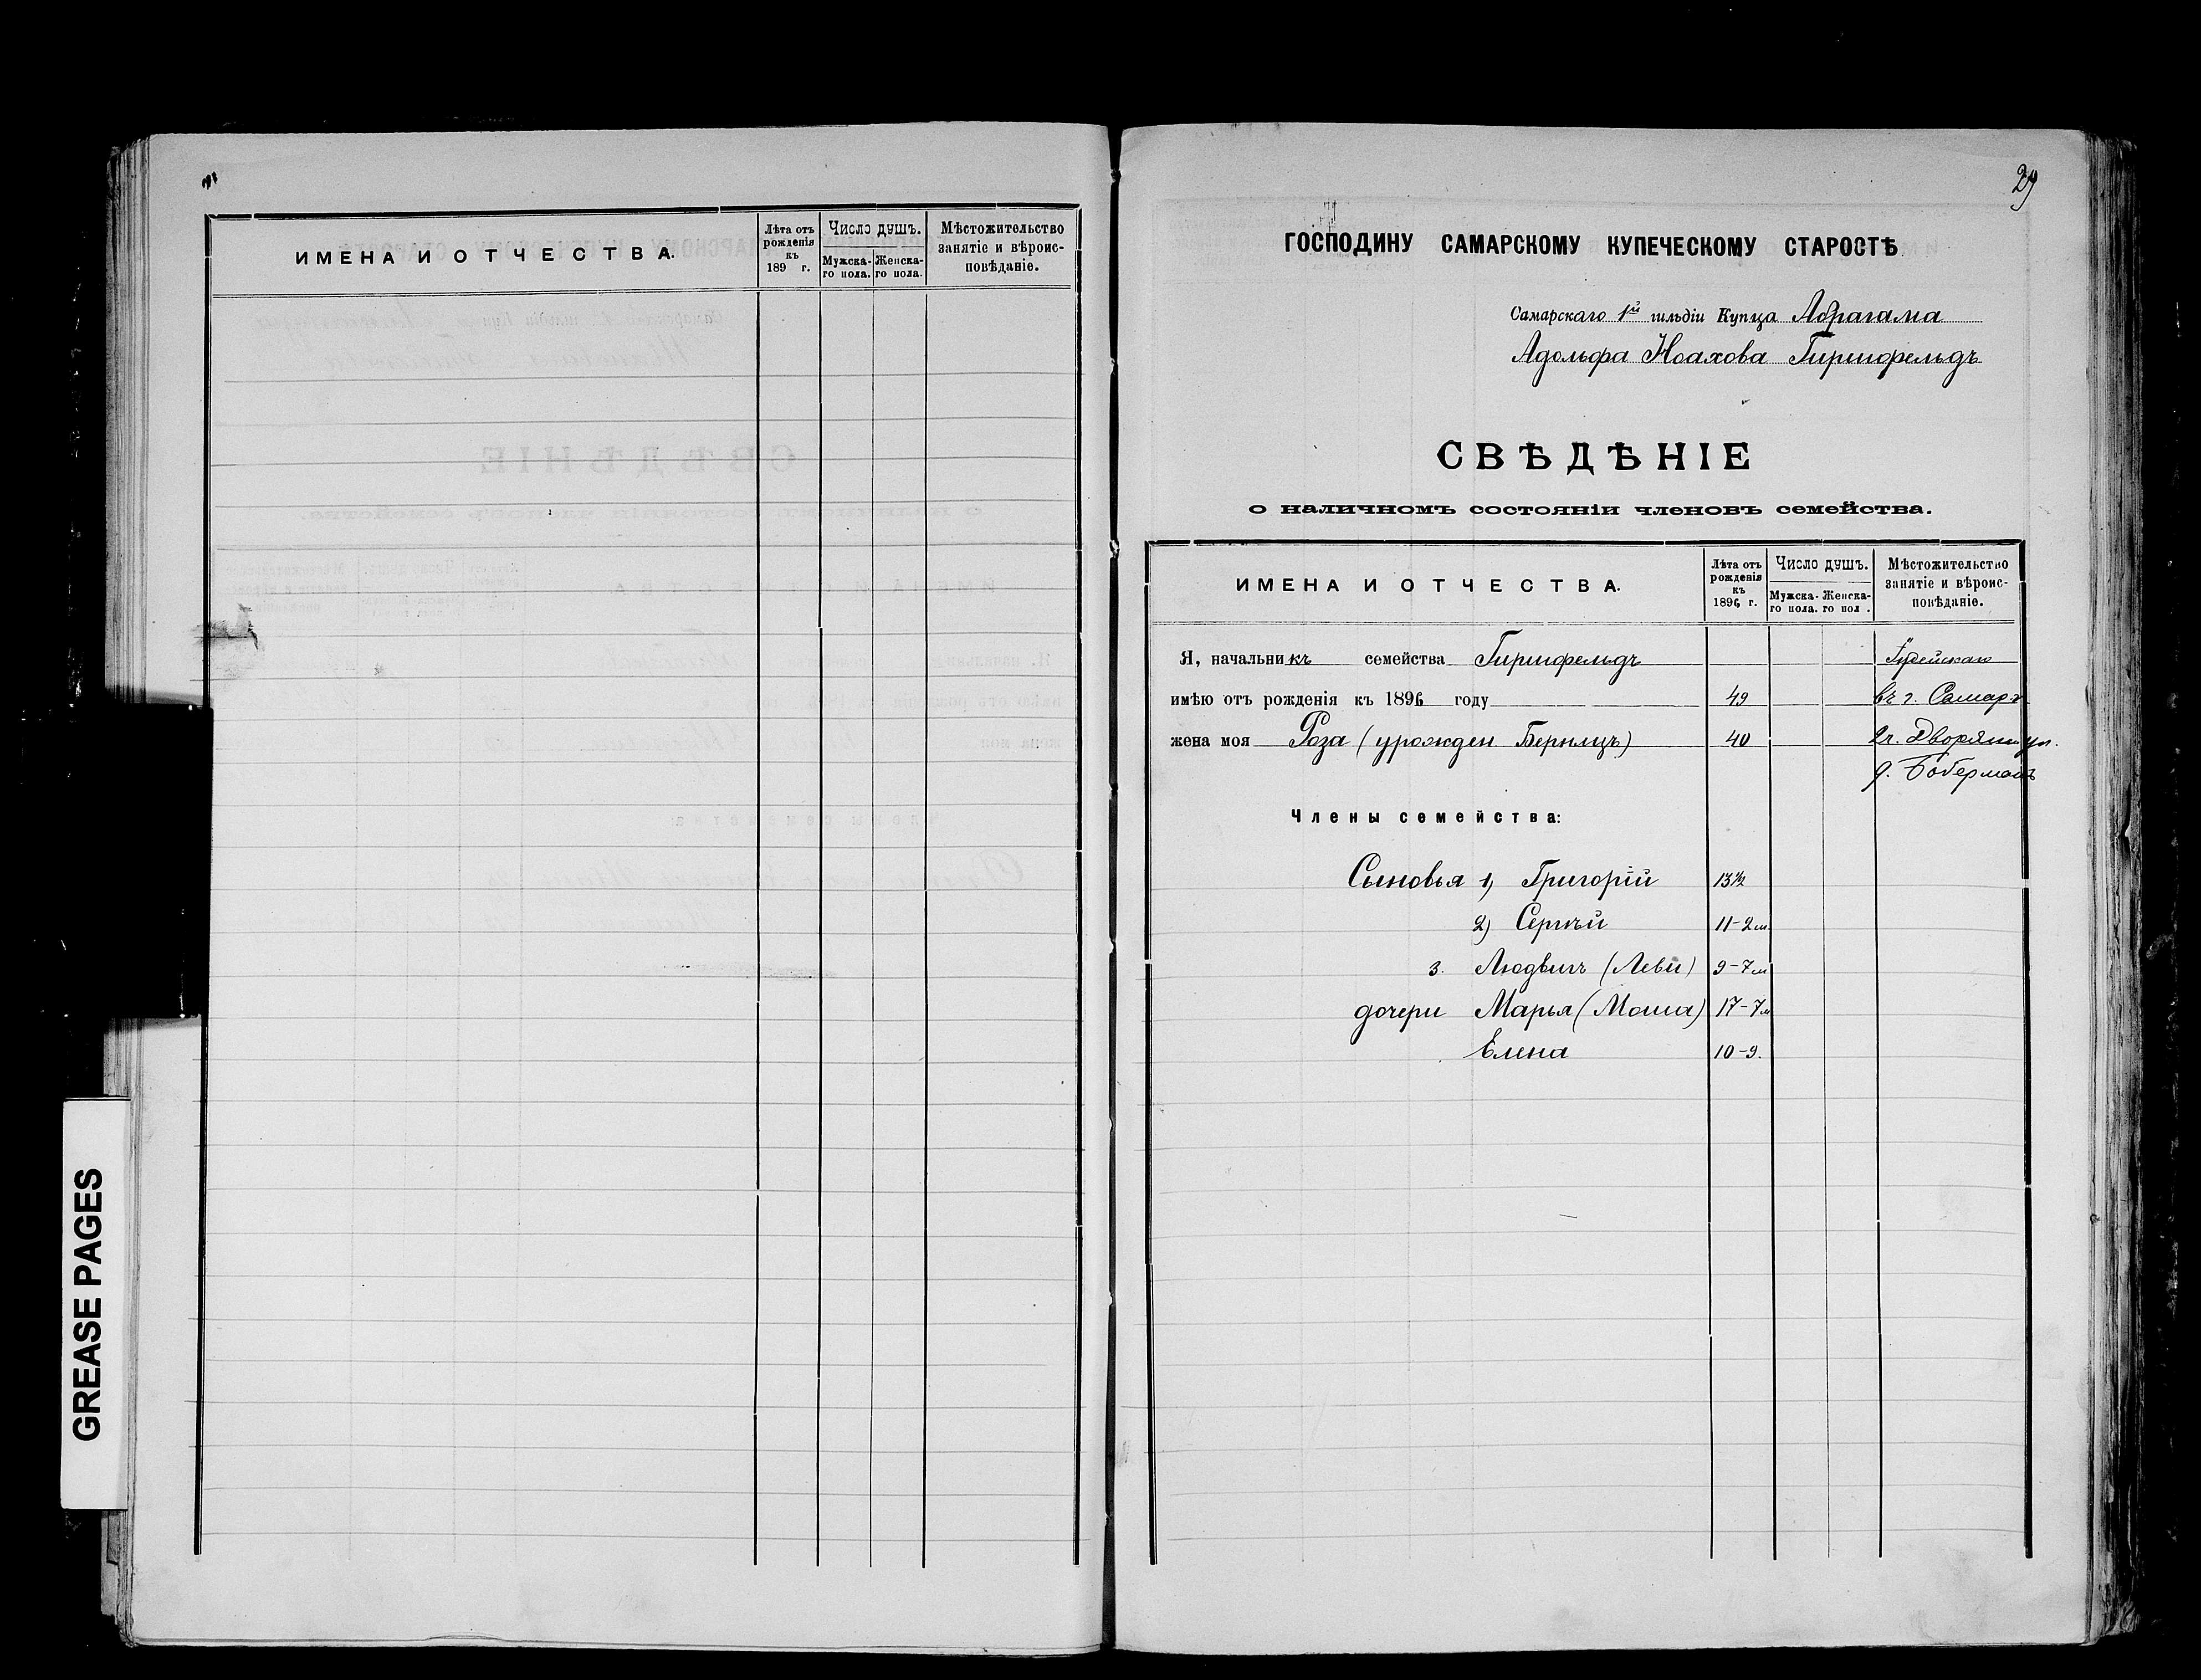 ИМЕНА И ОТЧЕСТВА.
Лѣта отъ рожденія къ 189 г.
Число душъ.
Мужска-го пола.
Женска-го пола.
Мѣстожительство занятіе и вѣроис-повѣданіе.
29
ГОСПОДИНУ САМАРСКОМУ КУПЕЧЕСКОМУ СТАРОСТѢ
Самарскаго 1й гильдіи Купца Абрагама
Адольфа Ноахова Гиршфельдъ
СВѢДѢНІЕ
о наличномъ состояніи членовъ семейства.
ИМЕНА И ОТЧЕСТВА.
Лѣта отъ рожденія къ 1896 г.
Число душъ.
Мужска-го пола.
Женска-го пол .
Мѣстожительство занятіе и вѣроис-повѣданіе.
Я, начальникъ семейства Гиршфельдъ Іудейскаго
имѣю отъ рожденія къ 1896 году 49 въ г. Самарѣ
жена моя Роза (урожден ) 40 Дворянск ул.
д. Боберманъ
Члены семейства:
Сыновья 1) Григорій 13 1/2
2) Сергѣй 11-2 м.
3. Людвигъ (Леви) 9-7 м
дочери Марья (Маша) 17-7 м
Елена 10-9.
GREASE PAGES